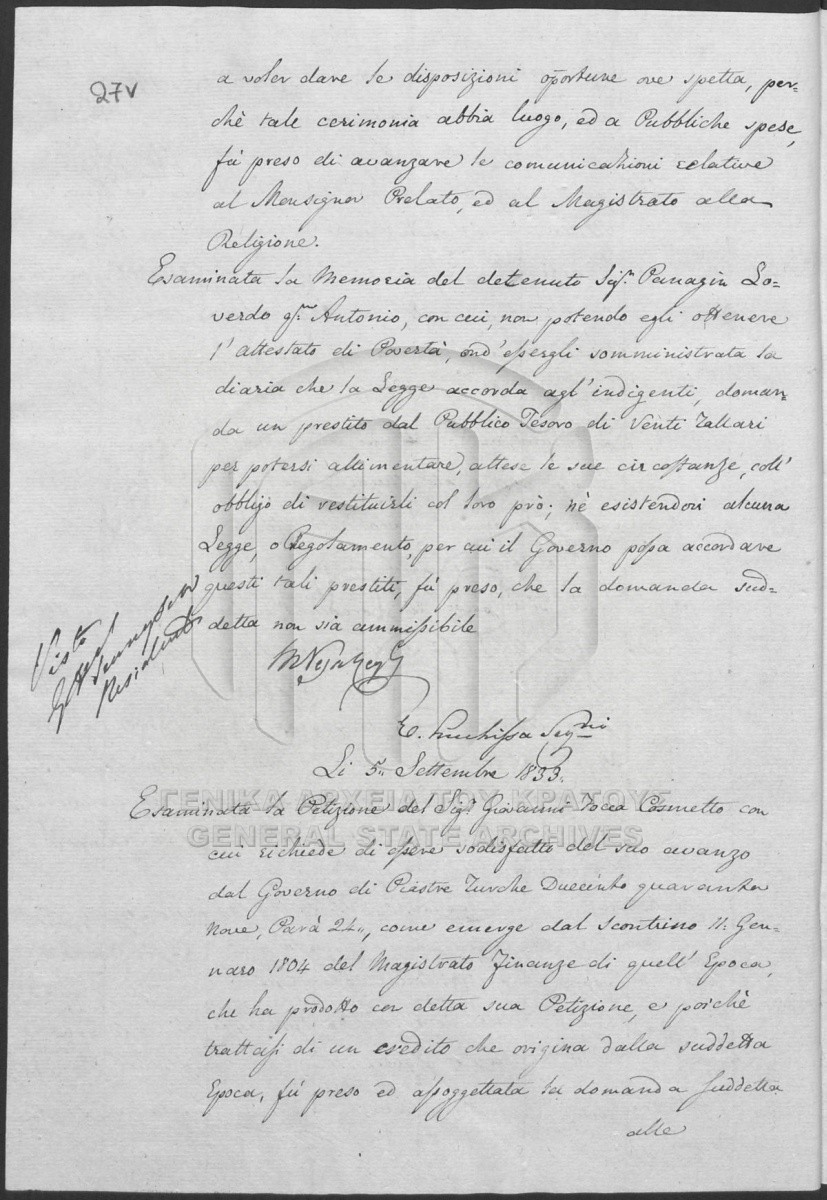 27v
a voler dare le disposizioni oportune ove spetta, per=
chè tale cerimonia abbia luogo, ed a Pubbliche spese,
fù preso di avanzare le comunicazioni relative
al Monsignor Prelato, ed al Magistrato alla
Religione.
Esaminata la Memoria del detenuto Sigr. Panagin Lo=
verdo qm. Antonio, con cui, non potendo egli ottenere
l'attestato di Povertà, ond'essergli somministrata la
diaria che la Legge accorda agl'indigenti, doman=
da un prestito dal Pubblico Tesoro di Venti Tallari
per potersi allimentare, attese le sue circostanze, coll'
obbligo di restituirli col loro prò; nè esistendovi alcuna
Legge, o Regolamento, per cui il Governo possa accordare
questi tali prestiti, fù preso, che la domanda sud=
detta non sia ammissibile
Visto
Residente
E. Segr
Li 5,, Settembre 1833.
ΓΕΝΙΚΑ ΑΡΧΕΙΑ ΤΟΥ ΚΡΑΤΟΥΣ
GENERAL STATE ARCHIVES
Esaminata la Petizione del Sigr. Giovanni Tocca Cosmetto con
cui richiede di essere sodisfatto del suo avanzo
dal Governo di Piastre Turche Duecento quaranta
nove, Parà 24,,, come emerge dal scontrino 11: Gen=
naro 1804 del Magistrato Finanze di quell'Epoca,
che ha prodotto con detta sua Petizione, e poichè
trattasi di un credito che origina dalla suddetta
Epoca, fù preso ed appoggettata la domanda suddetta
alle